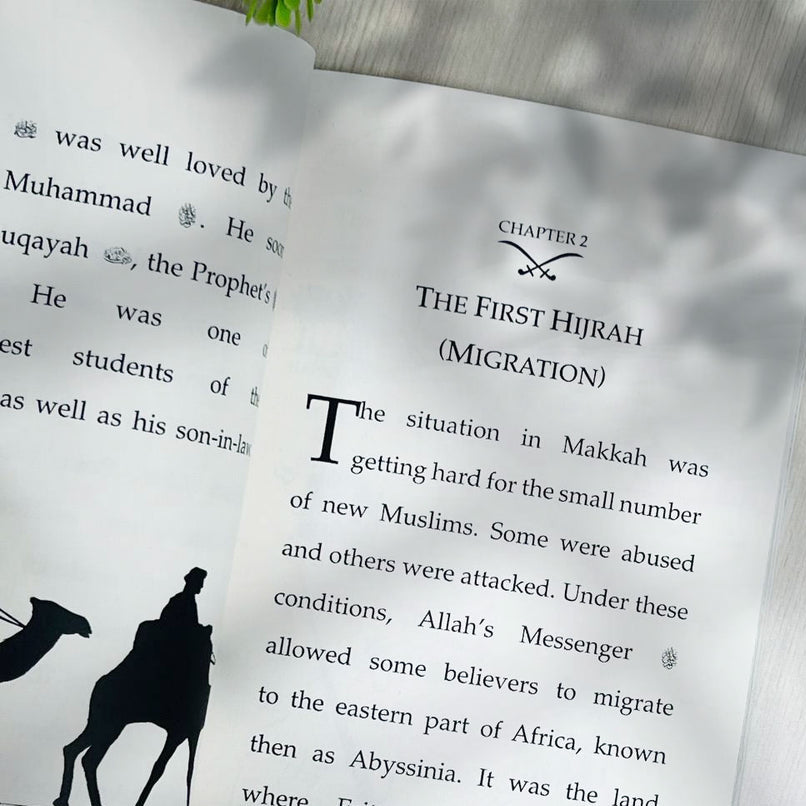 ﷺ was well loved by
Muhammad ﷺ. He
uqayah, the Prophet's
He was one
est students of
as well as his son-in-law
CHAPTER 2
THE FIRST HIJRAH
(MIGRATION)
The situation in Makkah was
getting hard for the small number
of new Muslims. Some were abused
and others were attacked. Under these
conditions, Allah's Messenger ﷺ
allowed some believers to migrate
to the eastern part of Africa, known
then as Abyssinia. It was the land
where